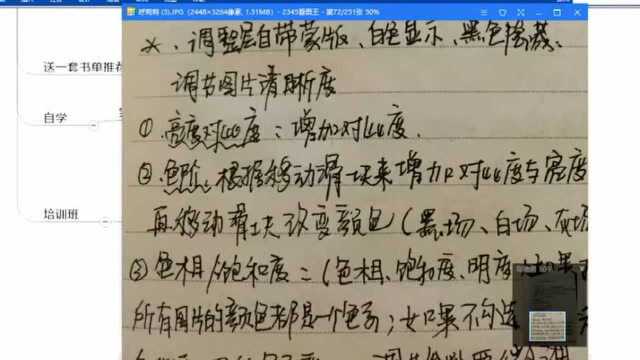 呵呵呵 (3).JPG (2448×3264像素, 1.31MB) - 2345看图王 - 第72/251张 50%
送一套书单推荐
自学
培训班
*、调整层自带蒙版、白色显示、黑色隐藏、
调节图片清晰度
① 亮度对比度：增加对比度.
② 色阶：根据移动滑块来增加对比度与亮度
再移动滑块改变颜色（黑场、白场、灰场
③ 色相/饱和度：（色相、饱和度、明度
所有图片的颜色都是一个色系；如果不勾选